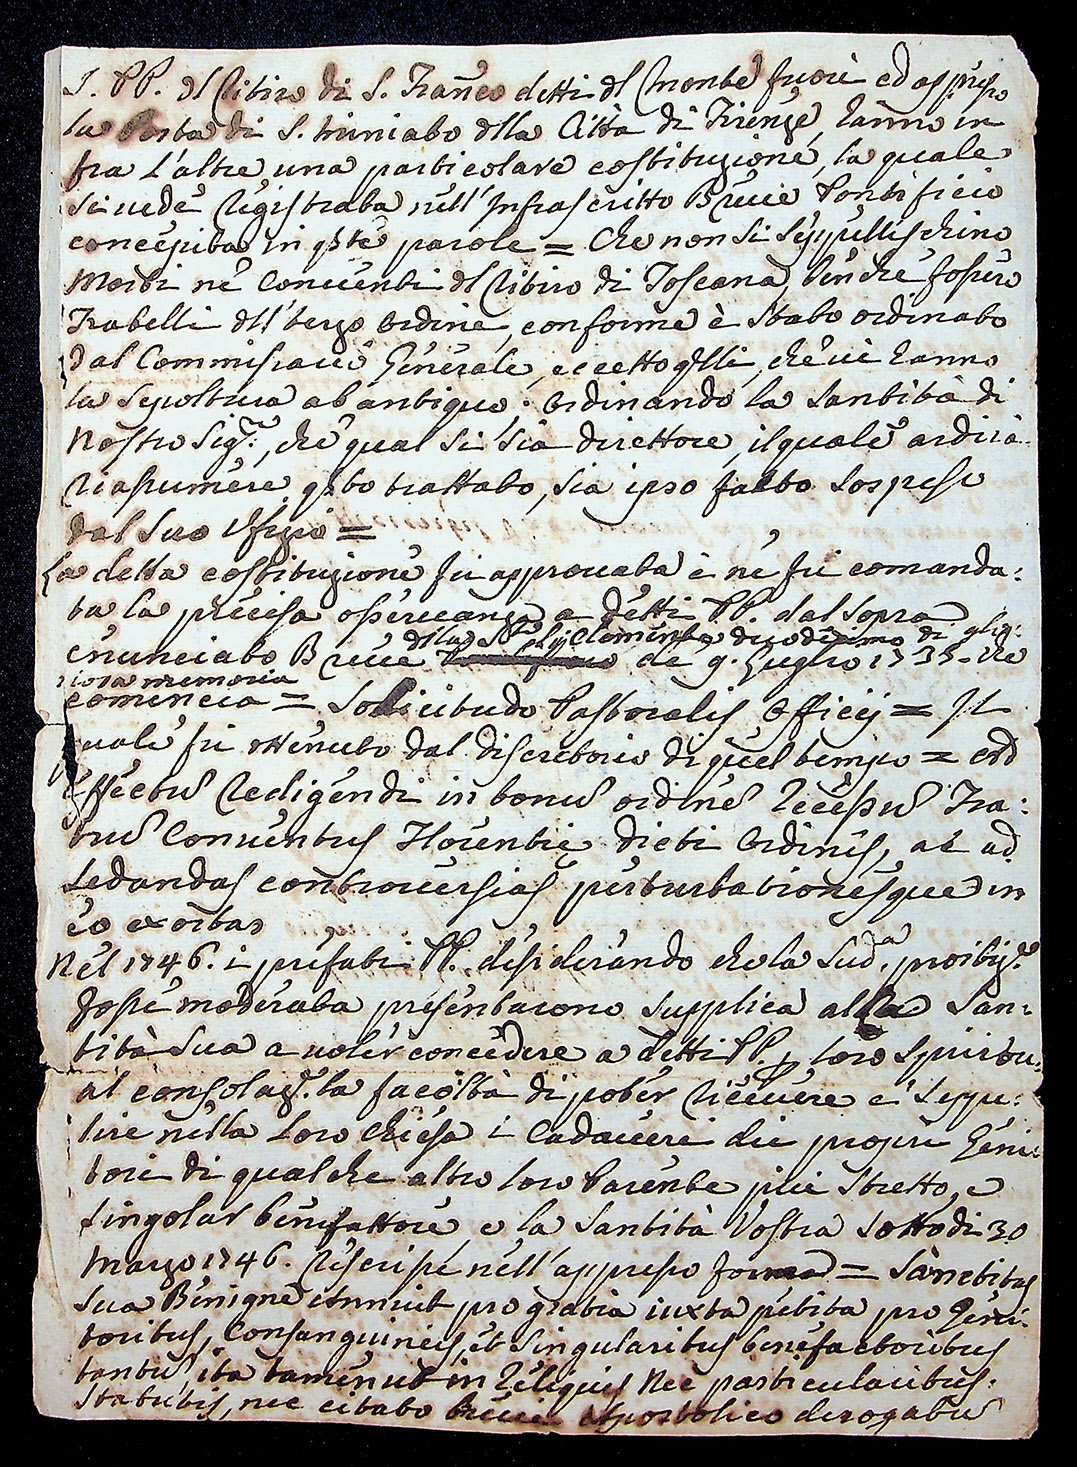 I PP. dl Ritiro di S. Franco detti dl Monte fuori ed appresso
la Porta di S. Miniato dlla Città di Firenze, hanno in
fra l'altre una particolare costituzione, la quale
si vede registrata nell'Infrascritto Breve Pontificio
concepita in qste parole = Che non si seppellischino
Morti ne Conventi dl Ritiro di Toscana, benche fossero
Fratelli dll'terzo Ordine, conforme è stato ordinato
dal Commissario Generale, eccetto qlli, che vi hanno
la sepoltura ab antiquo. Ordinando la Santità di
Nostro Sigre., che qual si sia direttore, il quale ardirà
riassumere qsto trattato, sia ipso facto sospeso
dal suo Ufizio =
La detta costituzione fu approvata e ne fu comanda:
ta la precisa osservanza a detti PP. dal sopra
dlla Clemente duodecimo di glo:
enunciato Breve de 9. Luglio 1735. che
riosa memoria
comincia = Sollicitudo Pastoralis Officij = Il
quale fu ottenuto dal discretorio di quel tempo = ad
effectu redigendi in bonu ordine recessu Fra:
tru Conventus Florentie dicti Ordinis, ac ad
sedandas controversias perturbationesque in
eo exortas
Nel 1746. i prefati PP. desiderando che la Suda. proibize.
fosse moderata presentarono supplica alla San:
tità Sua a voler concedere a detti PP. p loro spiritu:
al consolaze. la facoltà di poter ricevere e seppe:
lire nella loro Chiesa i Cadaveri dei propri Geni:
tori di qualche altro loro Parente più stretto, e
singolar benefattore, e la Santità Vostra sotto di 30
Marzo 1746. rescrisse nell'appresso forma = Sanctitas
Sua Benigne annuit pro gratia iuxta petita pro Geni:
toribus, Consanguineis, et singularibus benefactoribus
tantu, ita tamen ut in reliquis nec particularibus
statutis, nec citato Brevi Apostolico derogatu